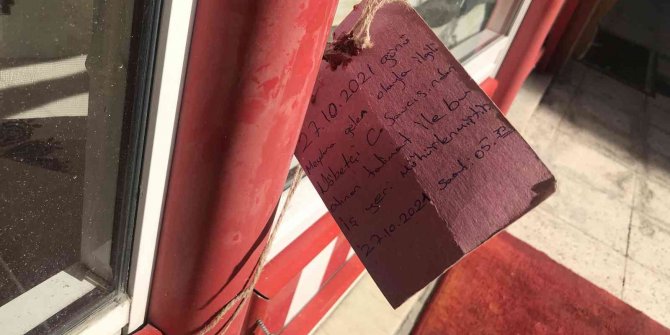 27.10.2021 günü
Meydana gelen olayla ilgili
Nöbetçi C. Savcısından
alınan talimat ile bu
iş yeri mühürlenmiştir.
27.10.2021 Saat: 05.